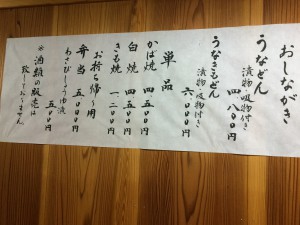 おしながき
うなどん
漬物・吸物付き
四、八〇〇円
うなきもどん
漬物・吸物付き
六、〇〇〇円
単品
かば焼 四五〇〇円
白焼 四五〇〇円
きも焼 一二〇〇円
お持ち帰り用
弁当 五〇〇〇円
わさびしょうゆ漬
五〇〇円
※酒類の販売は
致しておりません